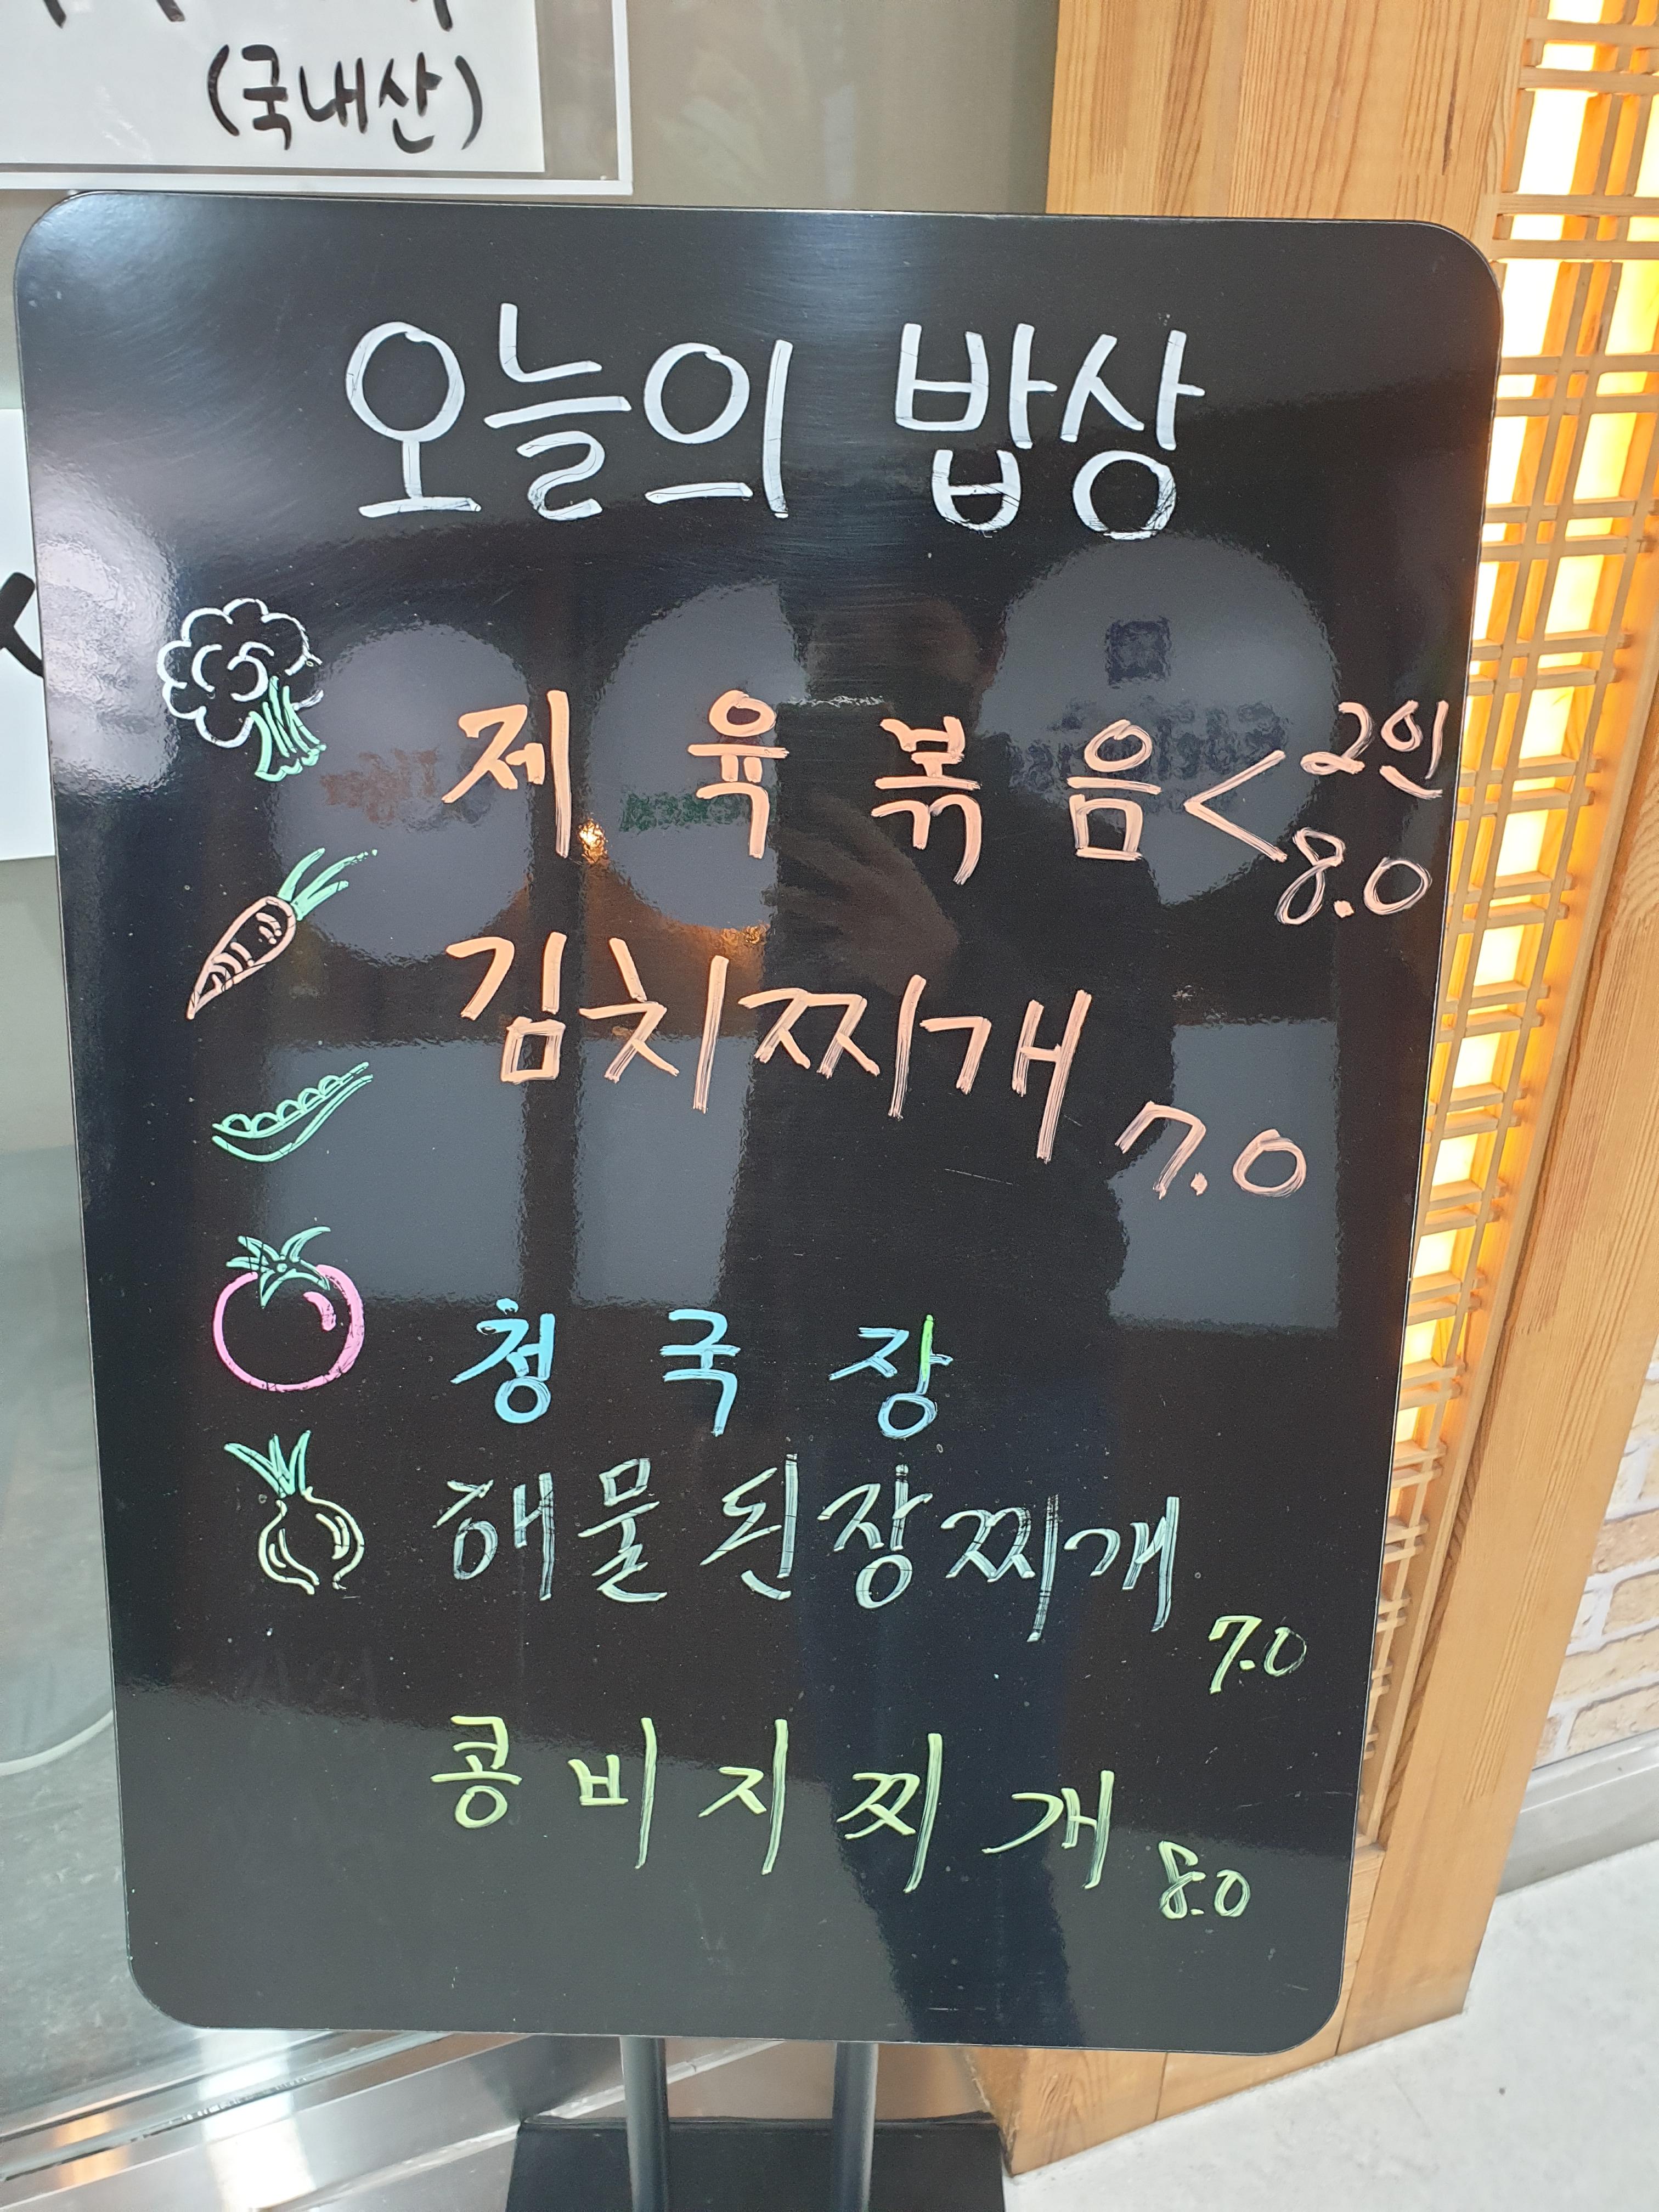 (국내산)
오늘의 밥상
제육볶음 < 2인
8.0
김치찌개
7.0
청국장
해물된장찌개
7.0
콩비지찌개 8.0